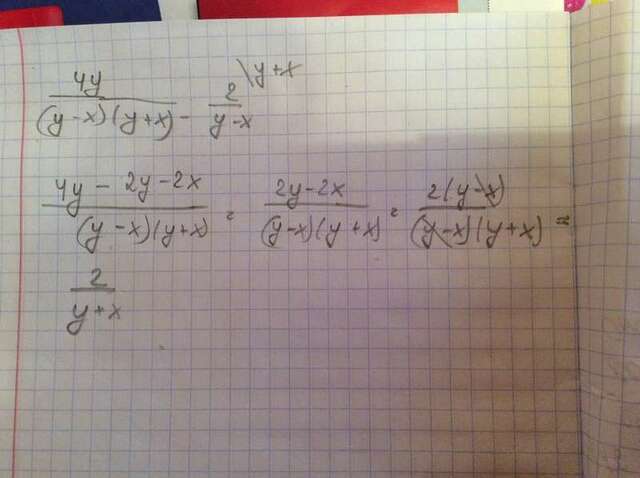 4y/((y-x)(y+x)) - 2/(y-x) \y+x
(4y - 2y - 2x)/((y-x)(y+x)) = (2y-2x)/((y-x)(y+x)) = 2(y-x)/((y-x)(y+x)) =
2/(y+x)